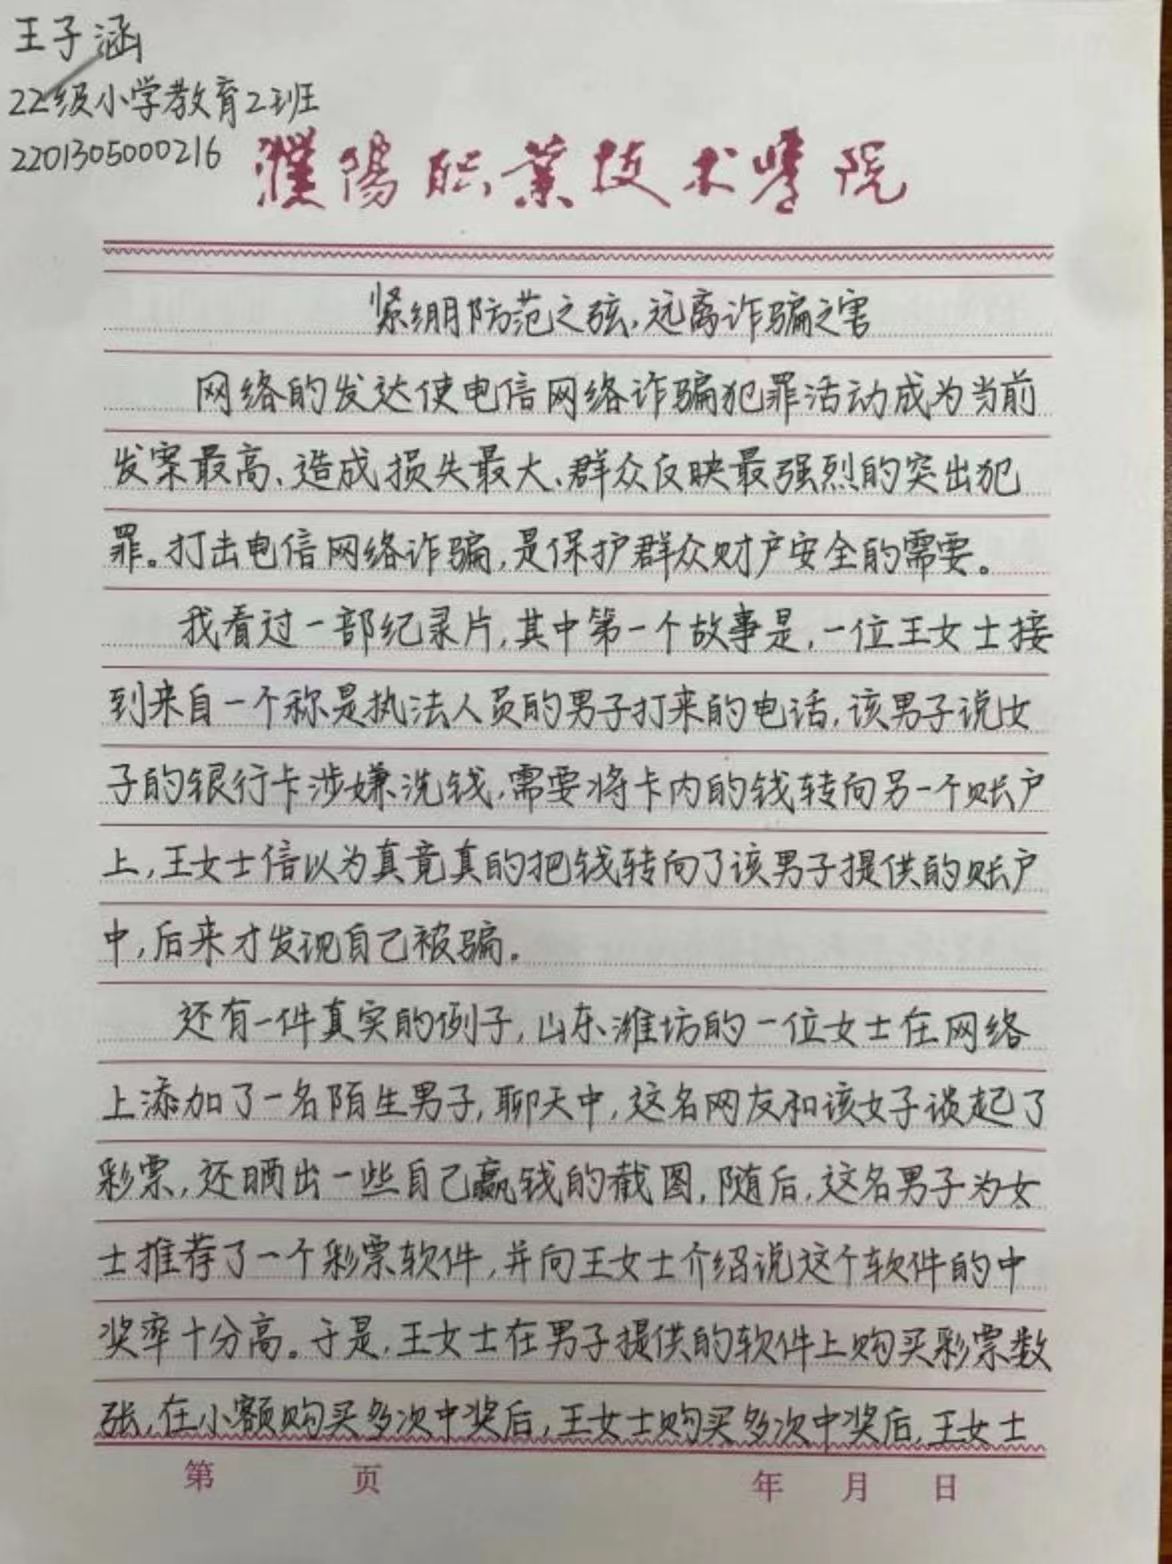 王子涵
22级小学教育2班
2201305000216
濮陽职業技术學院
紧绷防范之弦,远离诈骗之害
网络的发达使电信网络诈骗犯罪活动成为当前
发案最高、造成损失最大、群众反映最强烈的突出犯
罪。打击电信网络诈骗,是保护群众财产安全的需要。
我看过一部纪录片,其中第一个故事是,一位王女士接
到来自一个称是执法人员的男子打来的电话,该男子说女
子的银行卡涉嫌洗钱,需要将卡内的钱转向另一个账户
上,王女士信以为真竟真的把钱转向了该男子提供的账户
中,后来才发现自己被骗。
还有一件真实的例子,山东潍坊的一位女士在网络
上添加了一名陌生男子,聊天中,这名网友和该女子谈起了
彩票,还晒出一些自己赢钱的截图,随后,这名男子为女
士推荐了一个彩票软件,并向王女士介绍说这个软件的中
奖率十分高。于是,王女士在男子提供的软件上购买彩票数
张,在小额购买多次中奖后,王女士购买多次中奖后,王女士
第 页 年 月 日